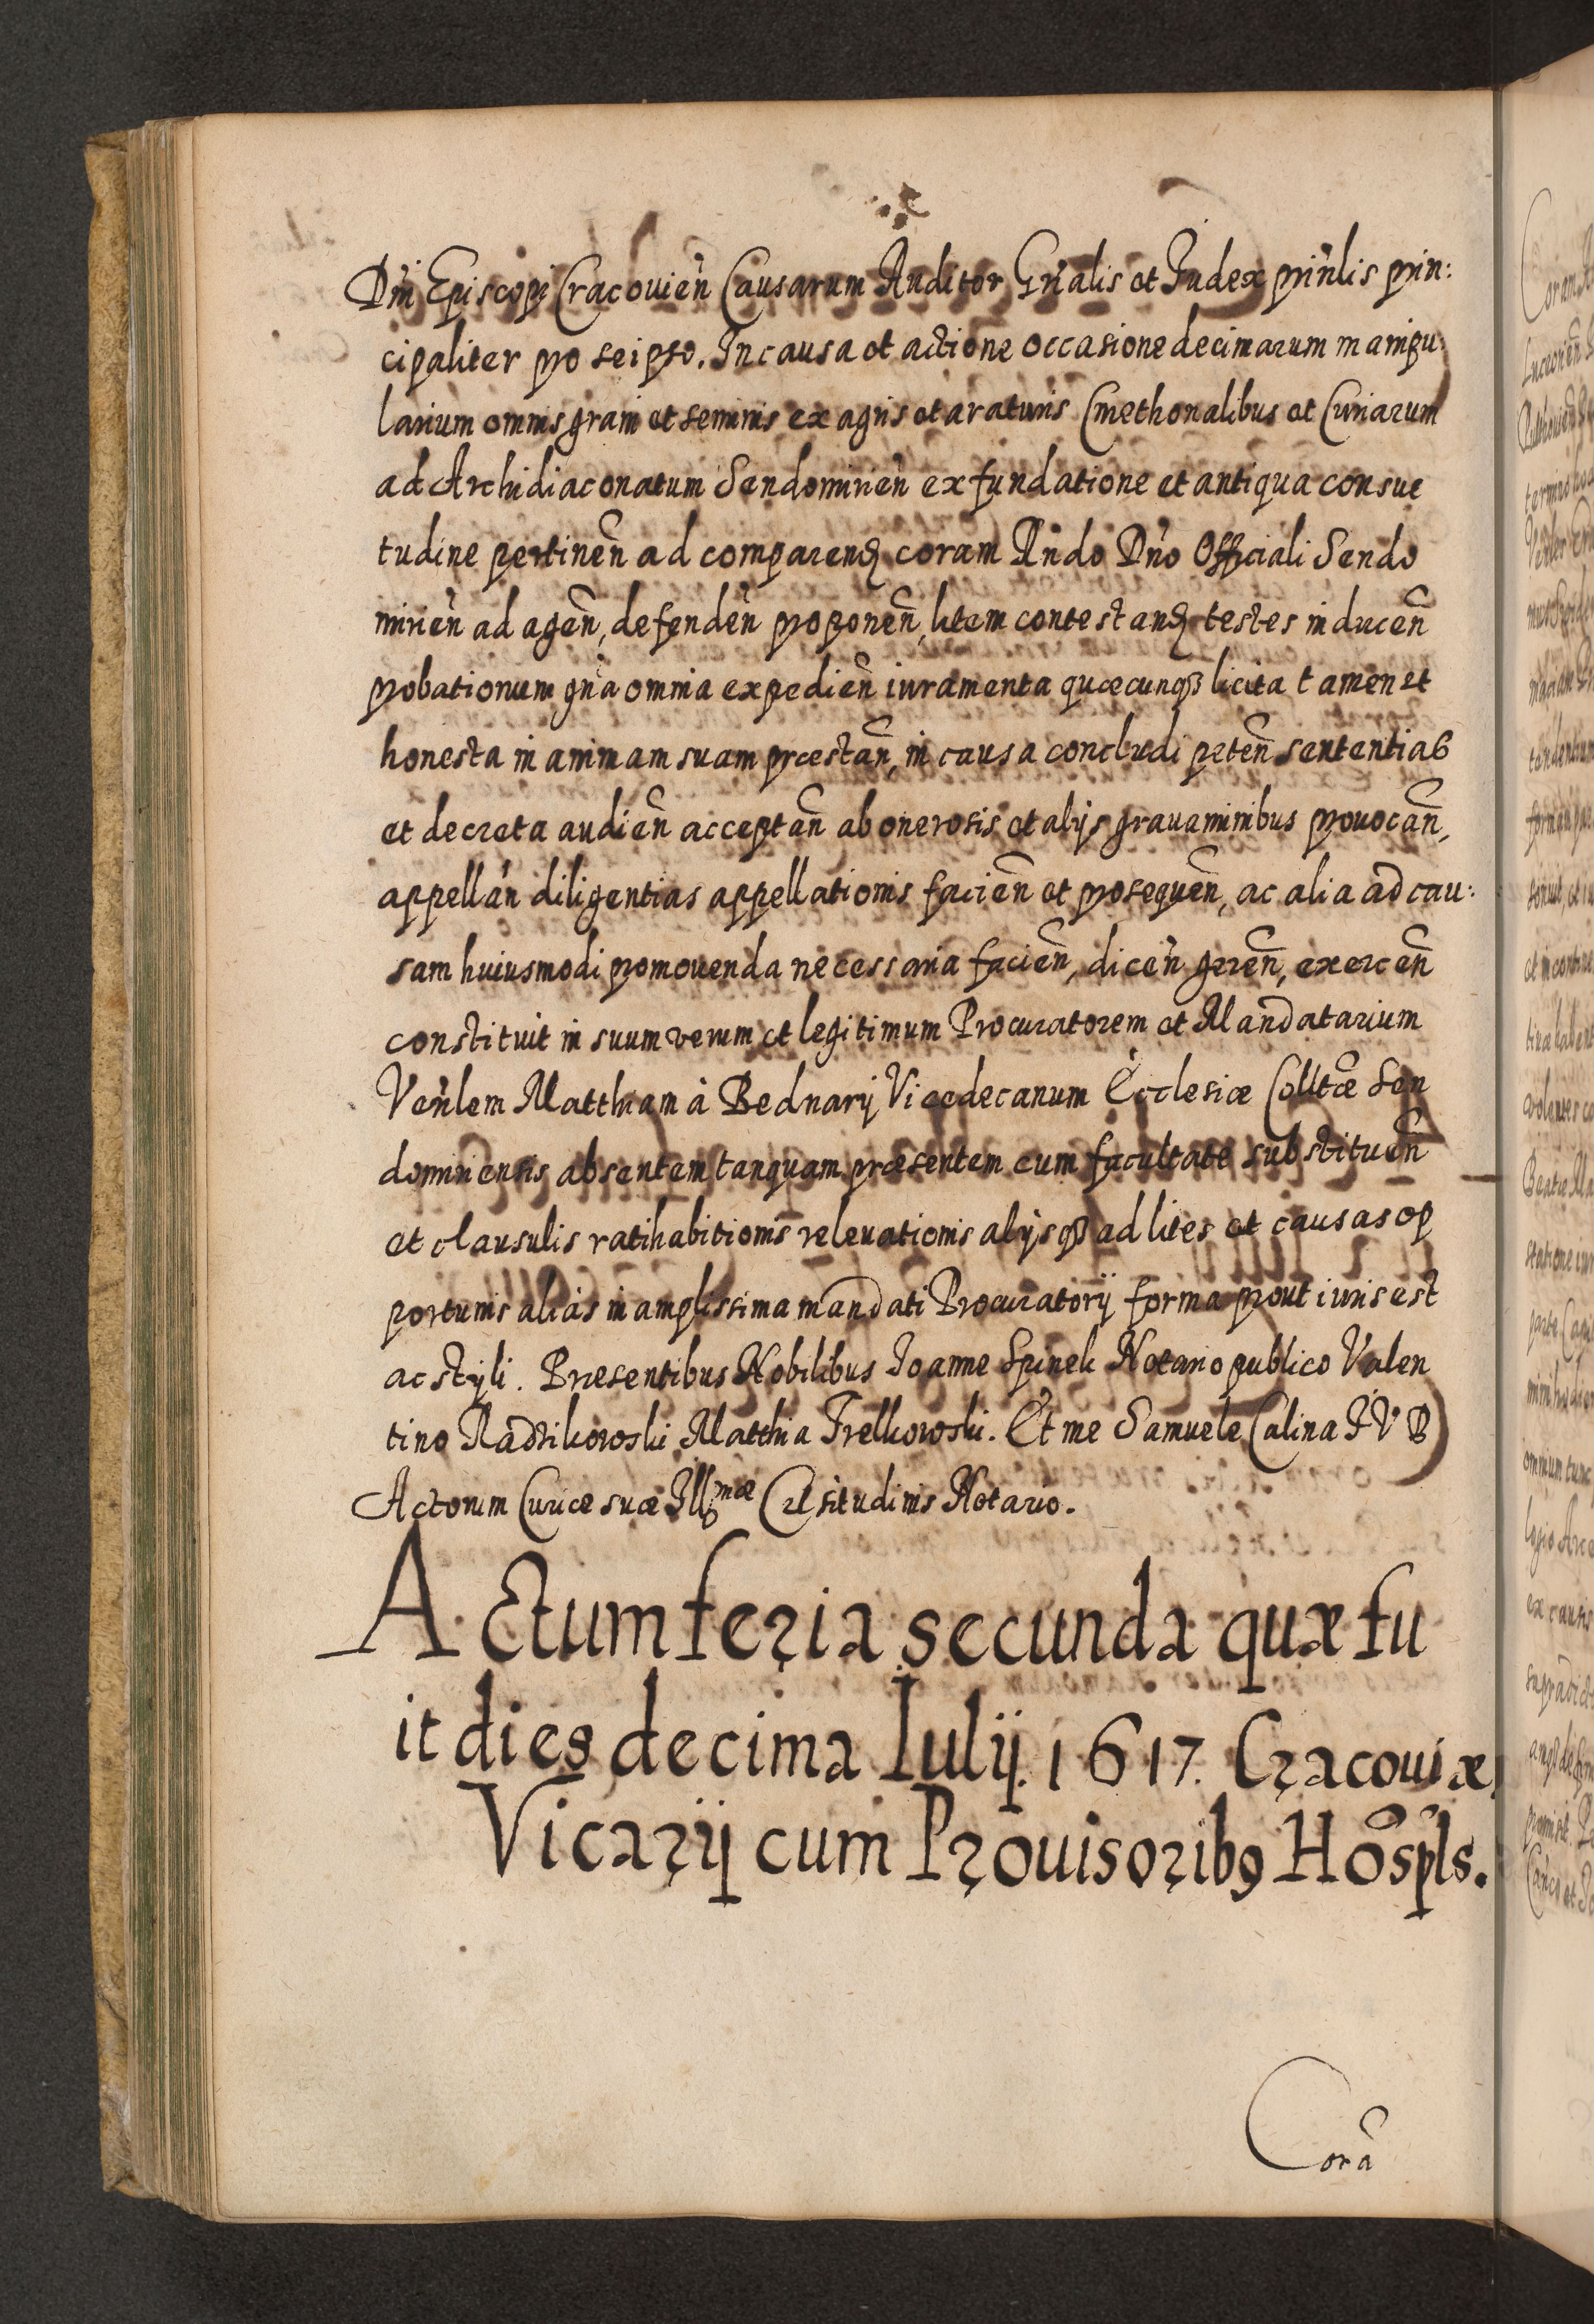 Dn̄i Episcopi Cracouien̄ Causarum Auditor Gn̄alis et Iudex prin̄lis prin:
cipaliter pro seipso. In causa et actione occasione decimarum manipu
larium omnis grani et seminis ex agris et araturis Cmethonalibus et Curiarum
ad Archidiaconatum Sendomirien̄ ex fundatione et antiqua consue
tudine pertinen̄ ad comparend coram Rn̄do Dn̄o Officiali Sendo
mirien̄ ad agen̄, defenden̄ proponen̄, litem contestand testes inducen̄
probationum gn̄a omnia expedien̄ iuramenta quæcunqȝ licita tamen et
honesta in animam suam præstan̄, in causa concludi peten̄ sententias
et decreta audien̄ acceptan̄ ab onerosis et alijs grauaminibus prouocan̄,
appellan̄ diligentias appellationis facien̄ et prosequen̄, ac alia ad cau:
sam huiusmodi promouenda necessaria facien̄, dicen̄ geren̄, exercen̄
constituit in suum verum et legitimum Procuratorem et Mandatarium
Ven̄lem Matthiam à Bednarij Vicedecanum Ecclesiæ Colltæ Sen
domiriensis absentem tanquam præsentem cum facultate substituen̄
et clausulis ratihabitionis releuationis alijsqȝ ad lites et causas op
portunis aliàs in amplissima mandati Procuratorij forma prout iuris est
ac styli. Præsentibus Nobilibus Ioanne Spinek Notario publico Valen
tino Radzikowski Matthia Trelkowski. Et me Samuele Calina I V B
Actorum Curiæ suæ Illmæ Celsitudinis Notario.
Actum feria secunda quæ fu
it dies decima Iulij. 1617. Cracouiæ,
Vicarij cum Prouisoribꝰ Hosp̄ls.
Corā